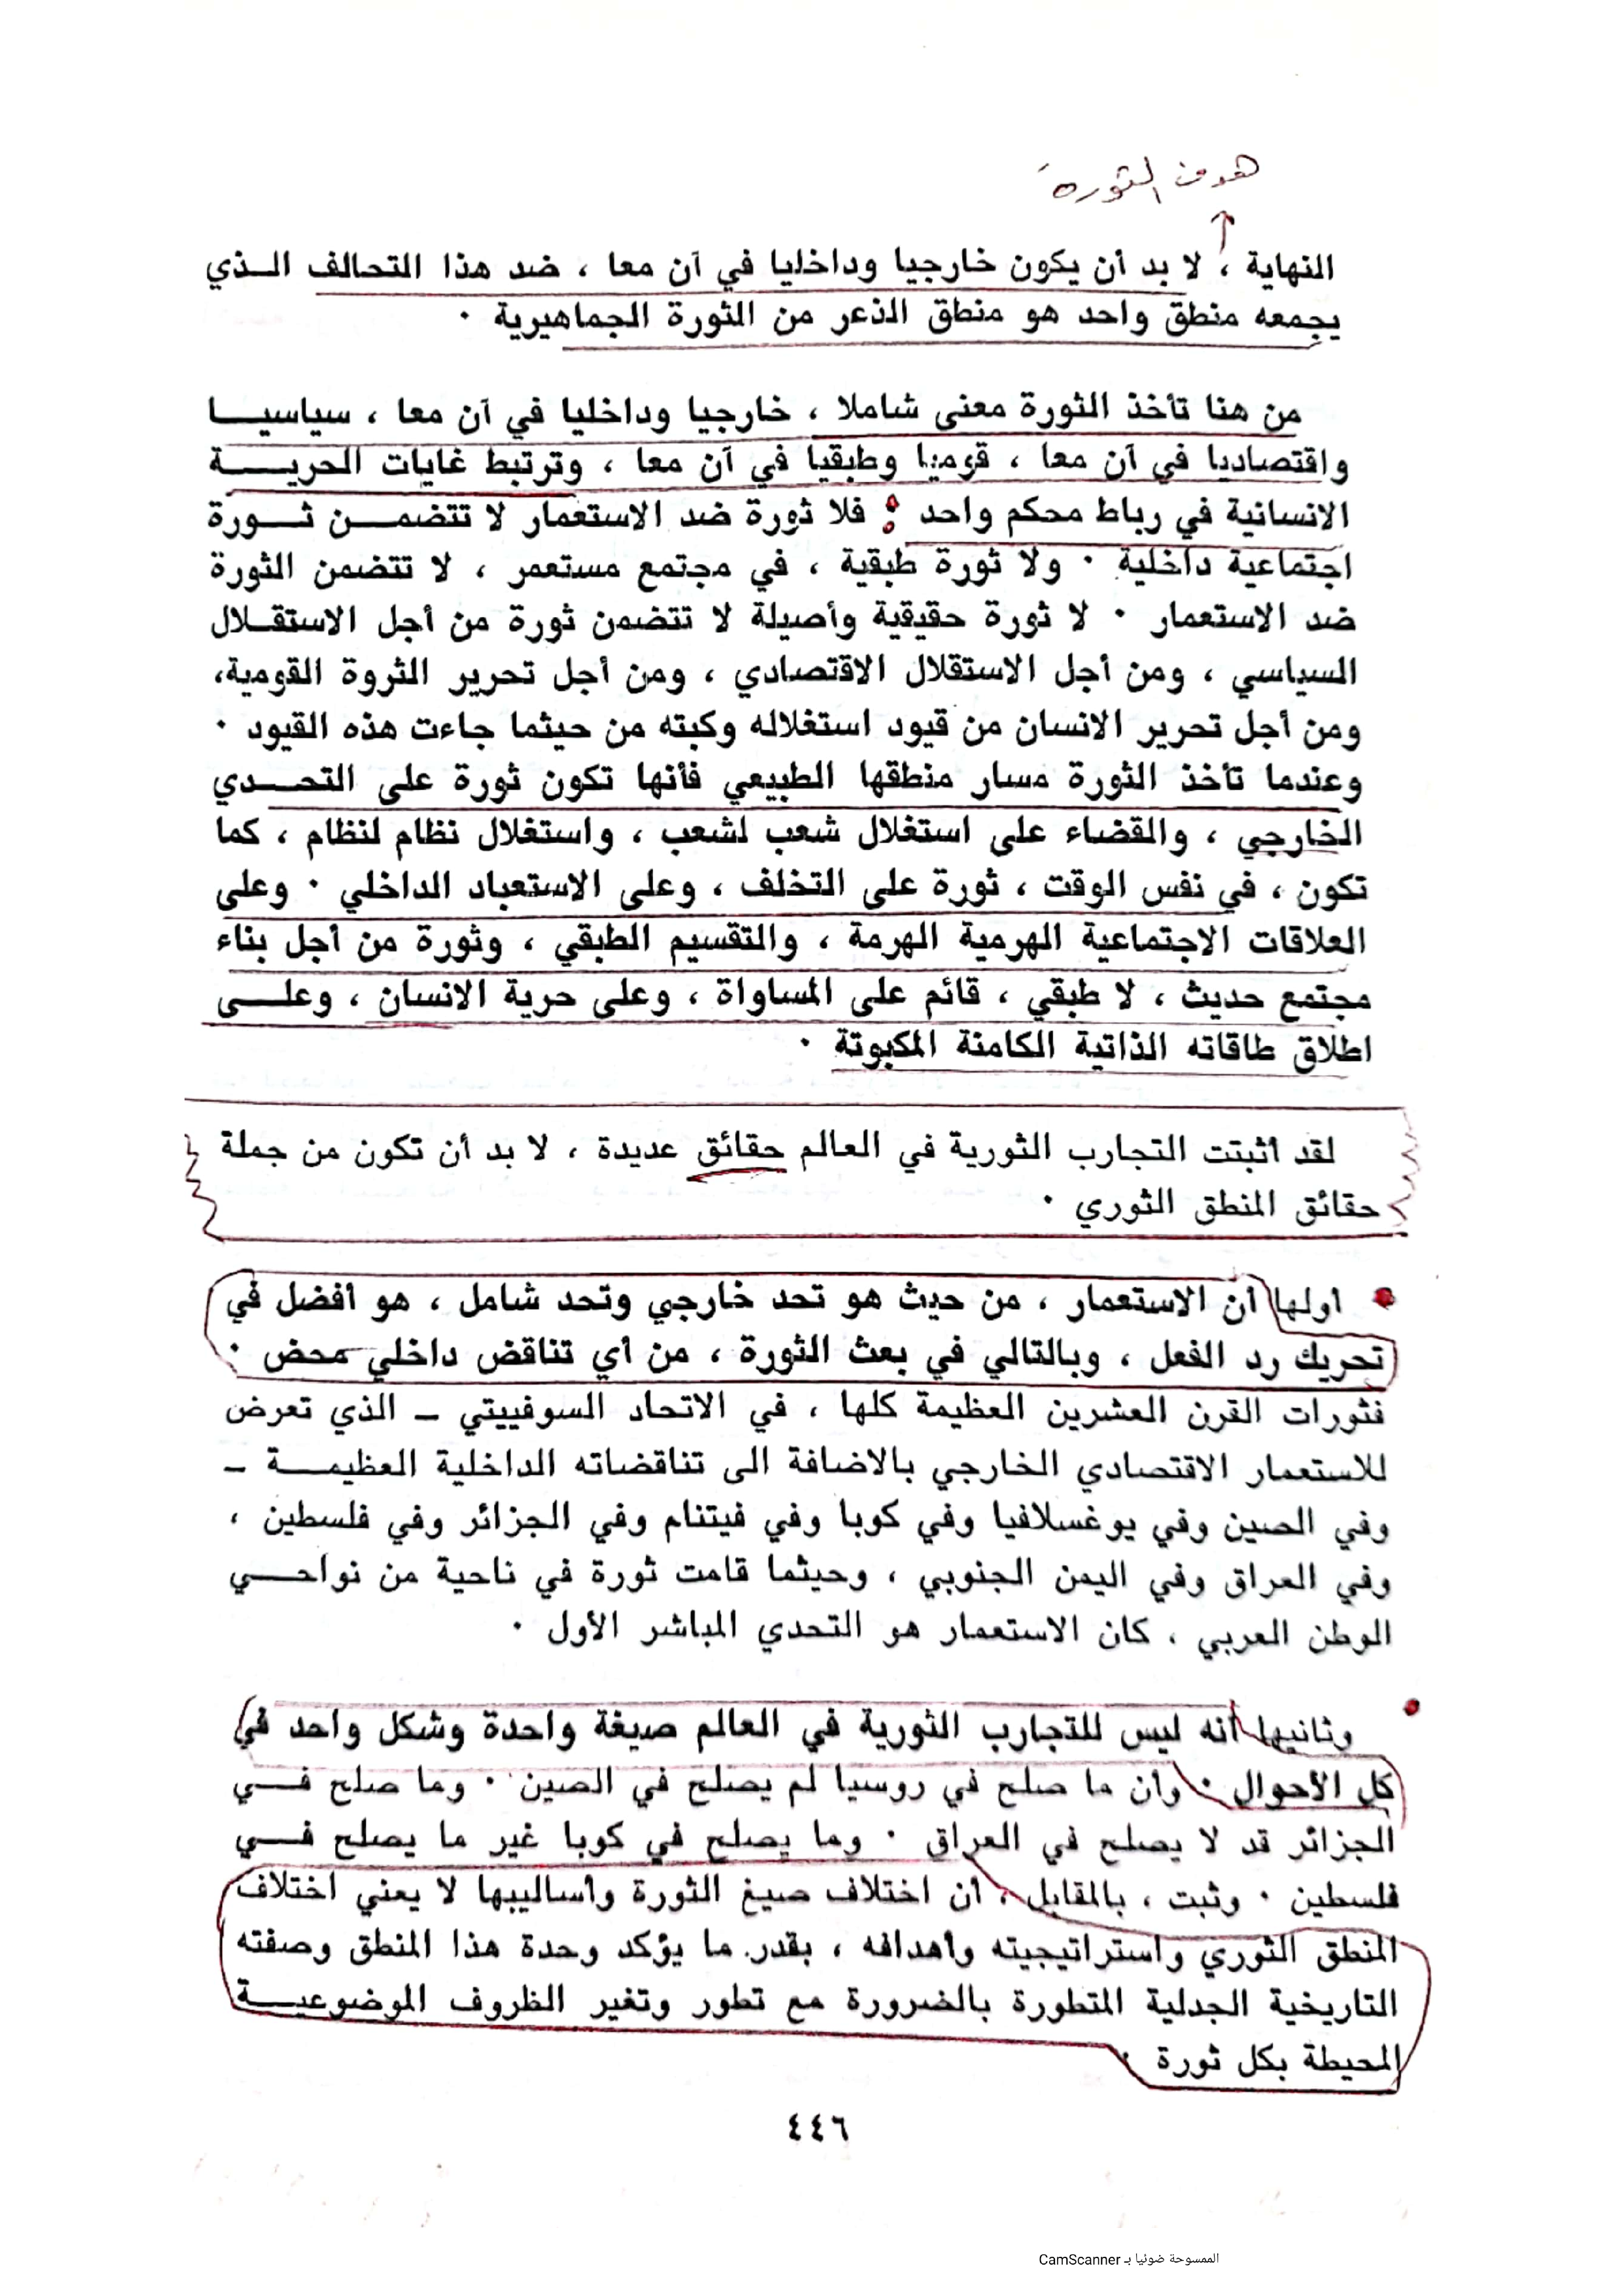 هدف الثورة
النهاية ، لا بد أن يكون خارجيا وداخليا في آن معا ، ضد هذا التحالف الـذي
يجمعه منطق واحد هو منطق الذعر من الثورة الجماهيرية .
من هنا تأخذ الثورة معنى شاملا ، خارجيا وداخليا في آن معا ، سياسيـــا
واقتصاديا في آن معا ، قوميا وطبقيا في آن معا ، وترتبط غايات الحريــــة
الانسانية في رباط محكم واحد : فلا ثورة ضد الاستعمار لا تتضمـــن ثــورة
اجتماعية داخلية . ولا ثورة طبقية ، في مجتمع مستعمر ، لا تتضمن الثورة
ضد الاستعمار . لا ثورة حقيقية وأصيلة لا تتضمن ثورة من أجل الاستقــلال
السياسي ، ومن أجل الاستقلال الاقتصادي ، ومن أجل تحرير الثروة القومية،
ومن أجل تحرير الانسان من قيود استغلاله وكبته من حيثما جاءت هذه القيود .
وعندما تأخذ الثورة مسار منطقها الطبيعي فأنها تكون ثورة على التحــدي
الخارجي ، والقضاء على استغلال شعب لشعب ، واستغلال نظام لنظام ، كما
تكون ، في نفس الوقت ، ثورة على التخلف ، وعلى الاستعباد الداخلي . وعلى
العلاقات الاجتماعية الهرمية الهرمة ، والتقسيم الطبقي ، وثورة من أجل بناء
مجتمع حديث ، لا طبقي ، قائم على المساواة ، وعلى حرية الانسان ، وعلــى
اطلاق طاقاته الذاتية الكامنة المكبوتة .
لقد أثبتت التجارب الثورية في العالم حقائق عديدة ، لا بد أن تكون من جملة
حقائق المنطق الثوري .
• اولها أن الاستعمار ، من حيث هو تحد خارجي وتحد شامل ، هو أفضل في
تحريك رد الفعل ، وبالتالي في بعث الثورة ، من أي تناقض داخلي محض .
فثورات القرن العشرين العظيمة كلها ، في الاتحاد السوفييتي ــ الذي تعرض
للاستعمار الاقتصادي الخارجي بالاضافة الى تناقضاته الداخلية العظيمــة ــ
وفي الصين وفي يوغسلافيا وفي كوبا وفي فيتنام وفي الجزائر وفي فلسطين ،
وفي العراق وفي اليمن الجنوبي ، وحيثما قامت ثورة في ناحية من نواحــي
الوطن العربي ، كان الاستعمار هو التحدي المباشر الأول .
• وثانيها أنه ليس للتجارب الثورية في العالم صيغة واحدة وشكل واحد في
كل الأحوال . وأن ما صلح في روسيا لم يصلح في الصين . وما صلح فــي
الجزائر قد لا يصلح في العراق . وما يصلح في كوبا غير ما يصلح فــي
فلسطين . وثبت ، بالمقابل ، أن اختلاف صيغ الثورة وأساليبها لا يعني اختلاف
المنطق الثوري واستراتيجيته وأهدافه ، بقدر ما يؤكد وحدة هذا المنطق وصفته
التاريخية الجدلية المتطورة بالضرورة مع تطور وتغير الظروف الموضوعيــة
المحيطة بكل ثورة .
٤٤٦
الممسوحة ضوئيا بـ CamScanner